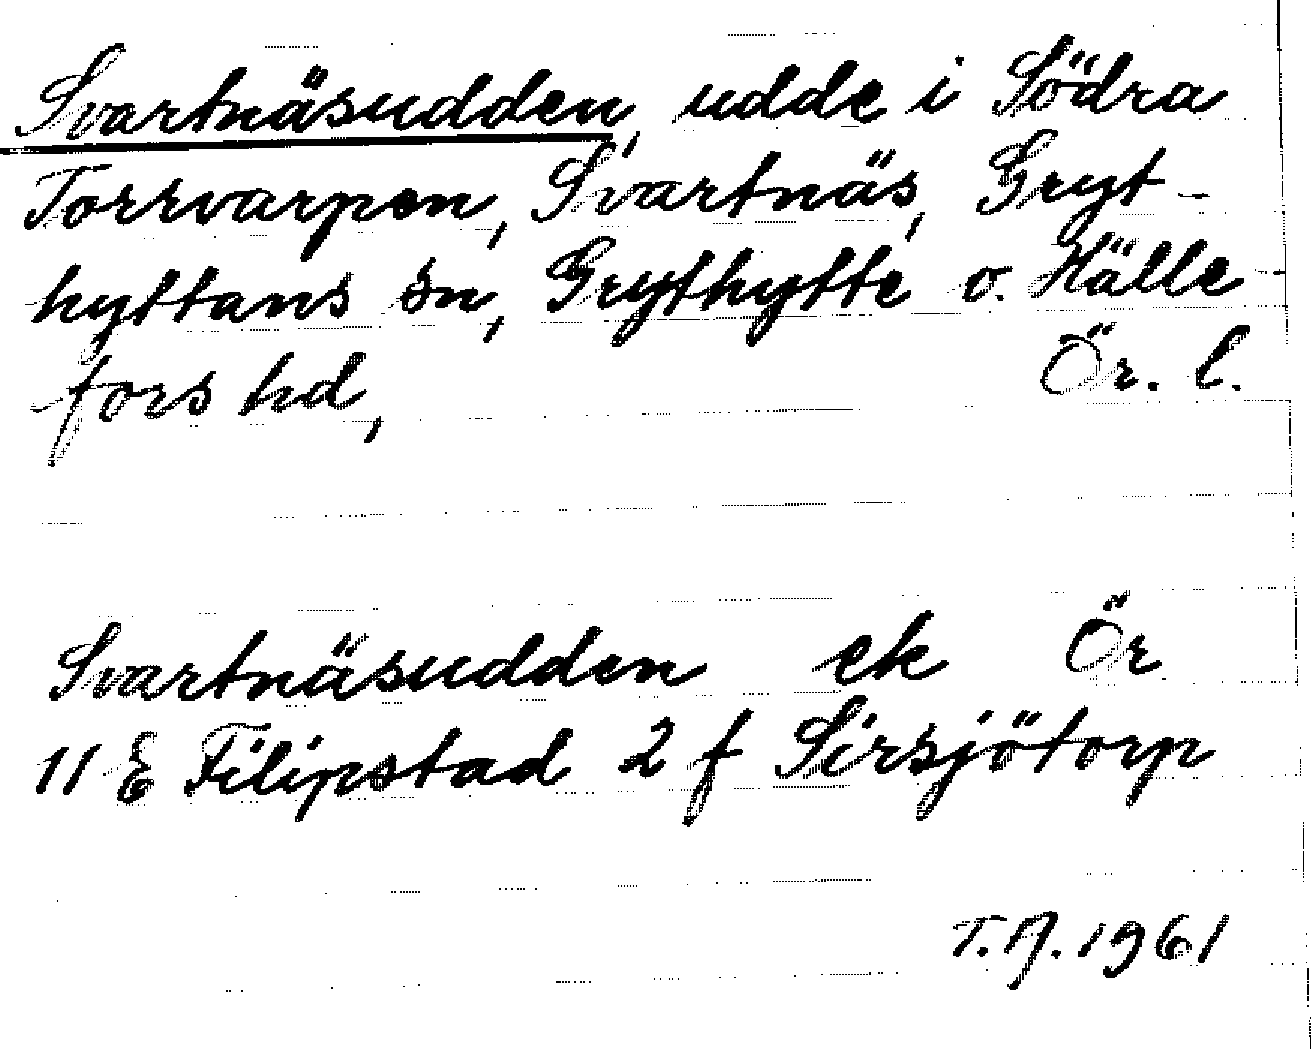 Svartnäsudden, udde i Södra
Torrvarpen, Svartnäs, Gryt-
hyttans sn, Grythytte o. Hälle-
fors hd, Ör. l.
Svartnäsudden ek Ör
11 E Filipstad 2 f Sirsjötorp
T.A. 1961